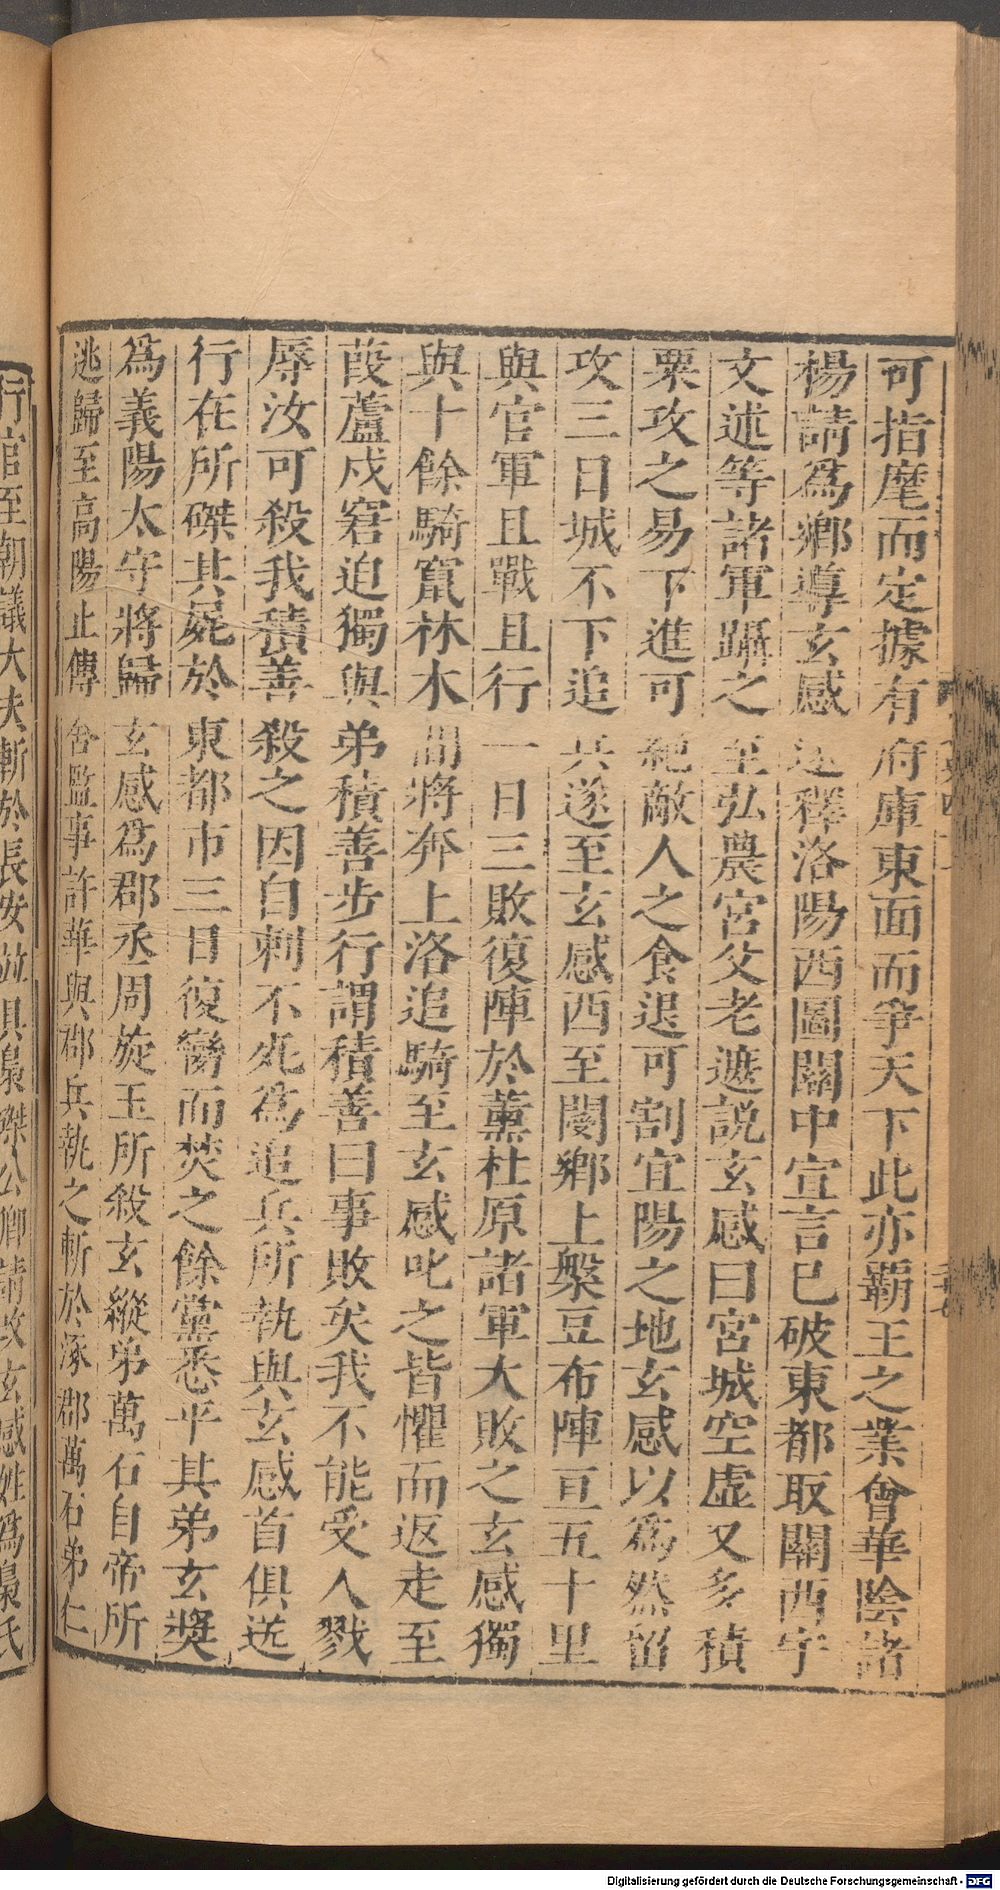 可指麾而定據有府庫東面而爭天下此亦霸王之業會華陰諸
楊請爲鄉導玄感遂釋洛陽西圖關中宣言已破東都取關西宇
文述等諸軍躡之至弘農宮父老遮說玄感曰宮城空虛又多積
粟攻之易下進可絕敵人之食退可割宜陽之地玄感以爲然留
攻三日城不下追兵遂至玄感西至閿鄉上槃豆布陣亘五十里
與官軍且戰且行一日三敗復陣於董杜原諸軍大敗之玄感獨
與十餘騎竄林木間將奔上洛追騎至玄感叱之皆懼而返走至
葭蘆戍窘迫獨與弟積善步行謂積善曰事敗矣我不能受人戮
辱汝可殺我積善殺之因自刺不死爲追兵所執與玄感首俱送
行在所磔其屍於東都市三日復臠而焚之餘黨悉平其弟玄獎
爲義陽太守將歸玄感爲郡丞周旋玉所殺玄縱弟萬石自帝所
逃歸至高陽止傳舍監事許華與郡兵執之斬於涿郡萬石弟仁
行官至朝議大夫斬於長安並具梟磔公卿請改玄感姓爲梟氏
Digitalisierung gefördert durch die Deutsche Forschungsgemeinschaft - DFG